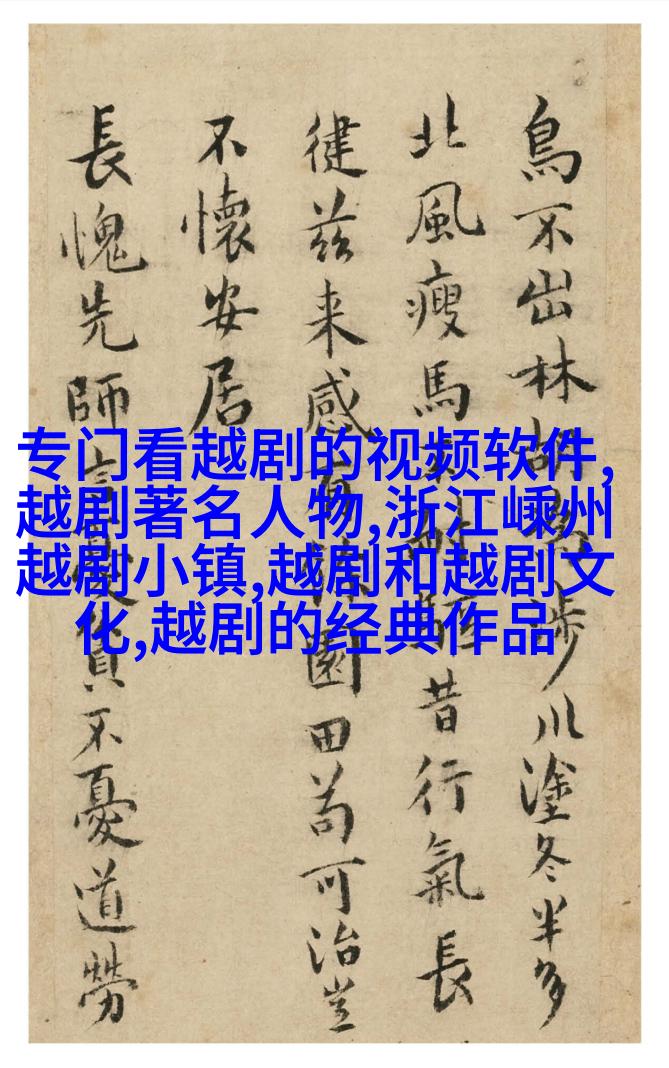 鳥不出林胡涉川塗冬半多
北風瘦馬昔行氣長
徤茲来感園田苟可治豈
不懷安居
長愧先師言貧不憂道勞
专门看越剧的视频软件,
越剧著名人物,浙江嵊州
越剧小镇,越剧和越剧文
化,越剧的经典作品